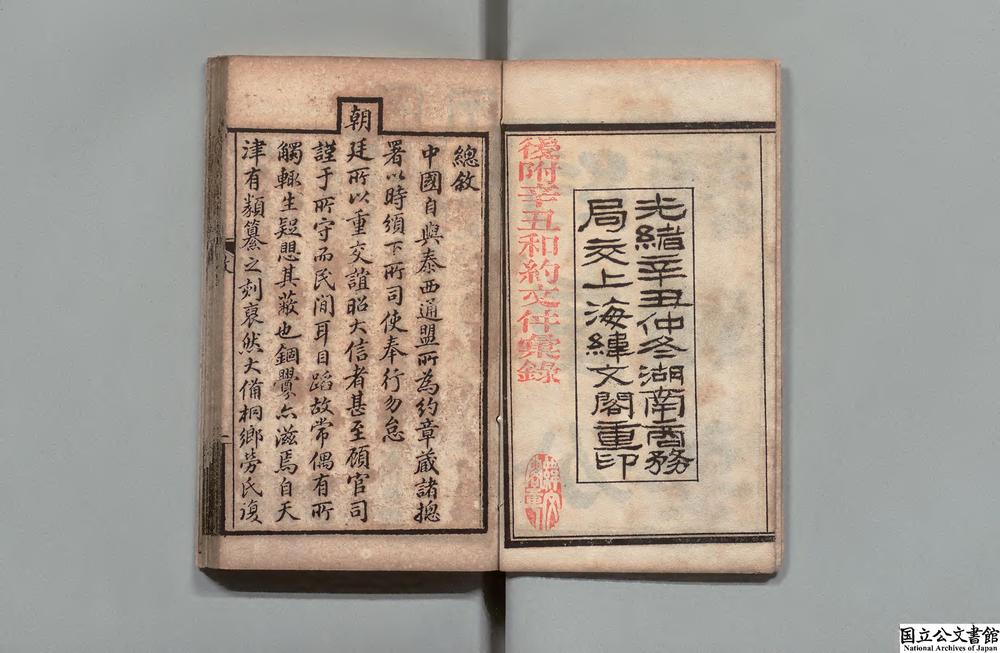 光緒辛丑仲冬湖南商務
局交上海緯文閣重印
後附辛丑和約文件彙錄
總敘
中國自與泰西通盟所為約章蔵諸摠
署以時頒下所司使奉行勿怠
朝
廷所以重交誼昭大信者甚至顧官司
謹于所守而民間耳目蹈故常偶有所
觸輒生疑愳其蔽也錮釁亦滋焉自天
津有類纂之刻裒然大備桐鄉勞氏復
国立公文書館
National Archives of Japan